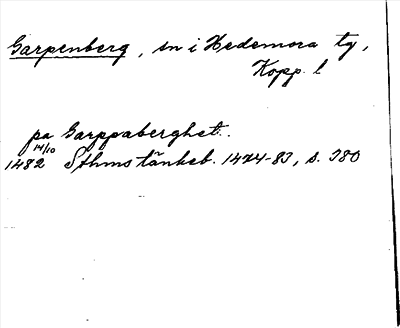 Garpenberg, sn i Hedemora tg,
Kopp. l
pa Garppaberghet.
1482 14/10 Sthms tänkeb. 1474-83, s. 380